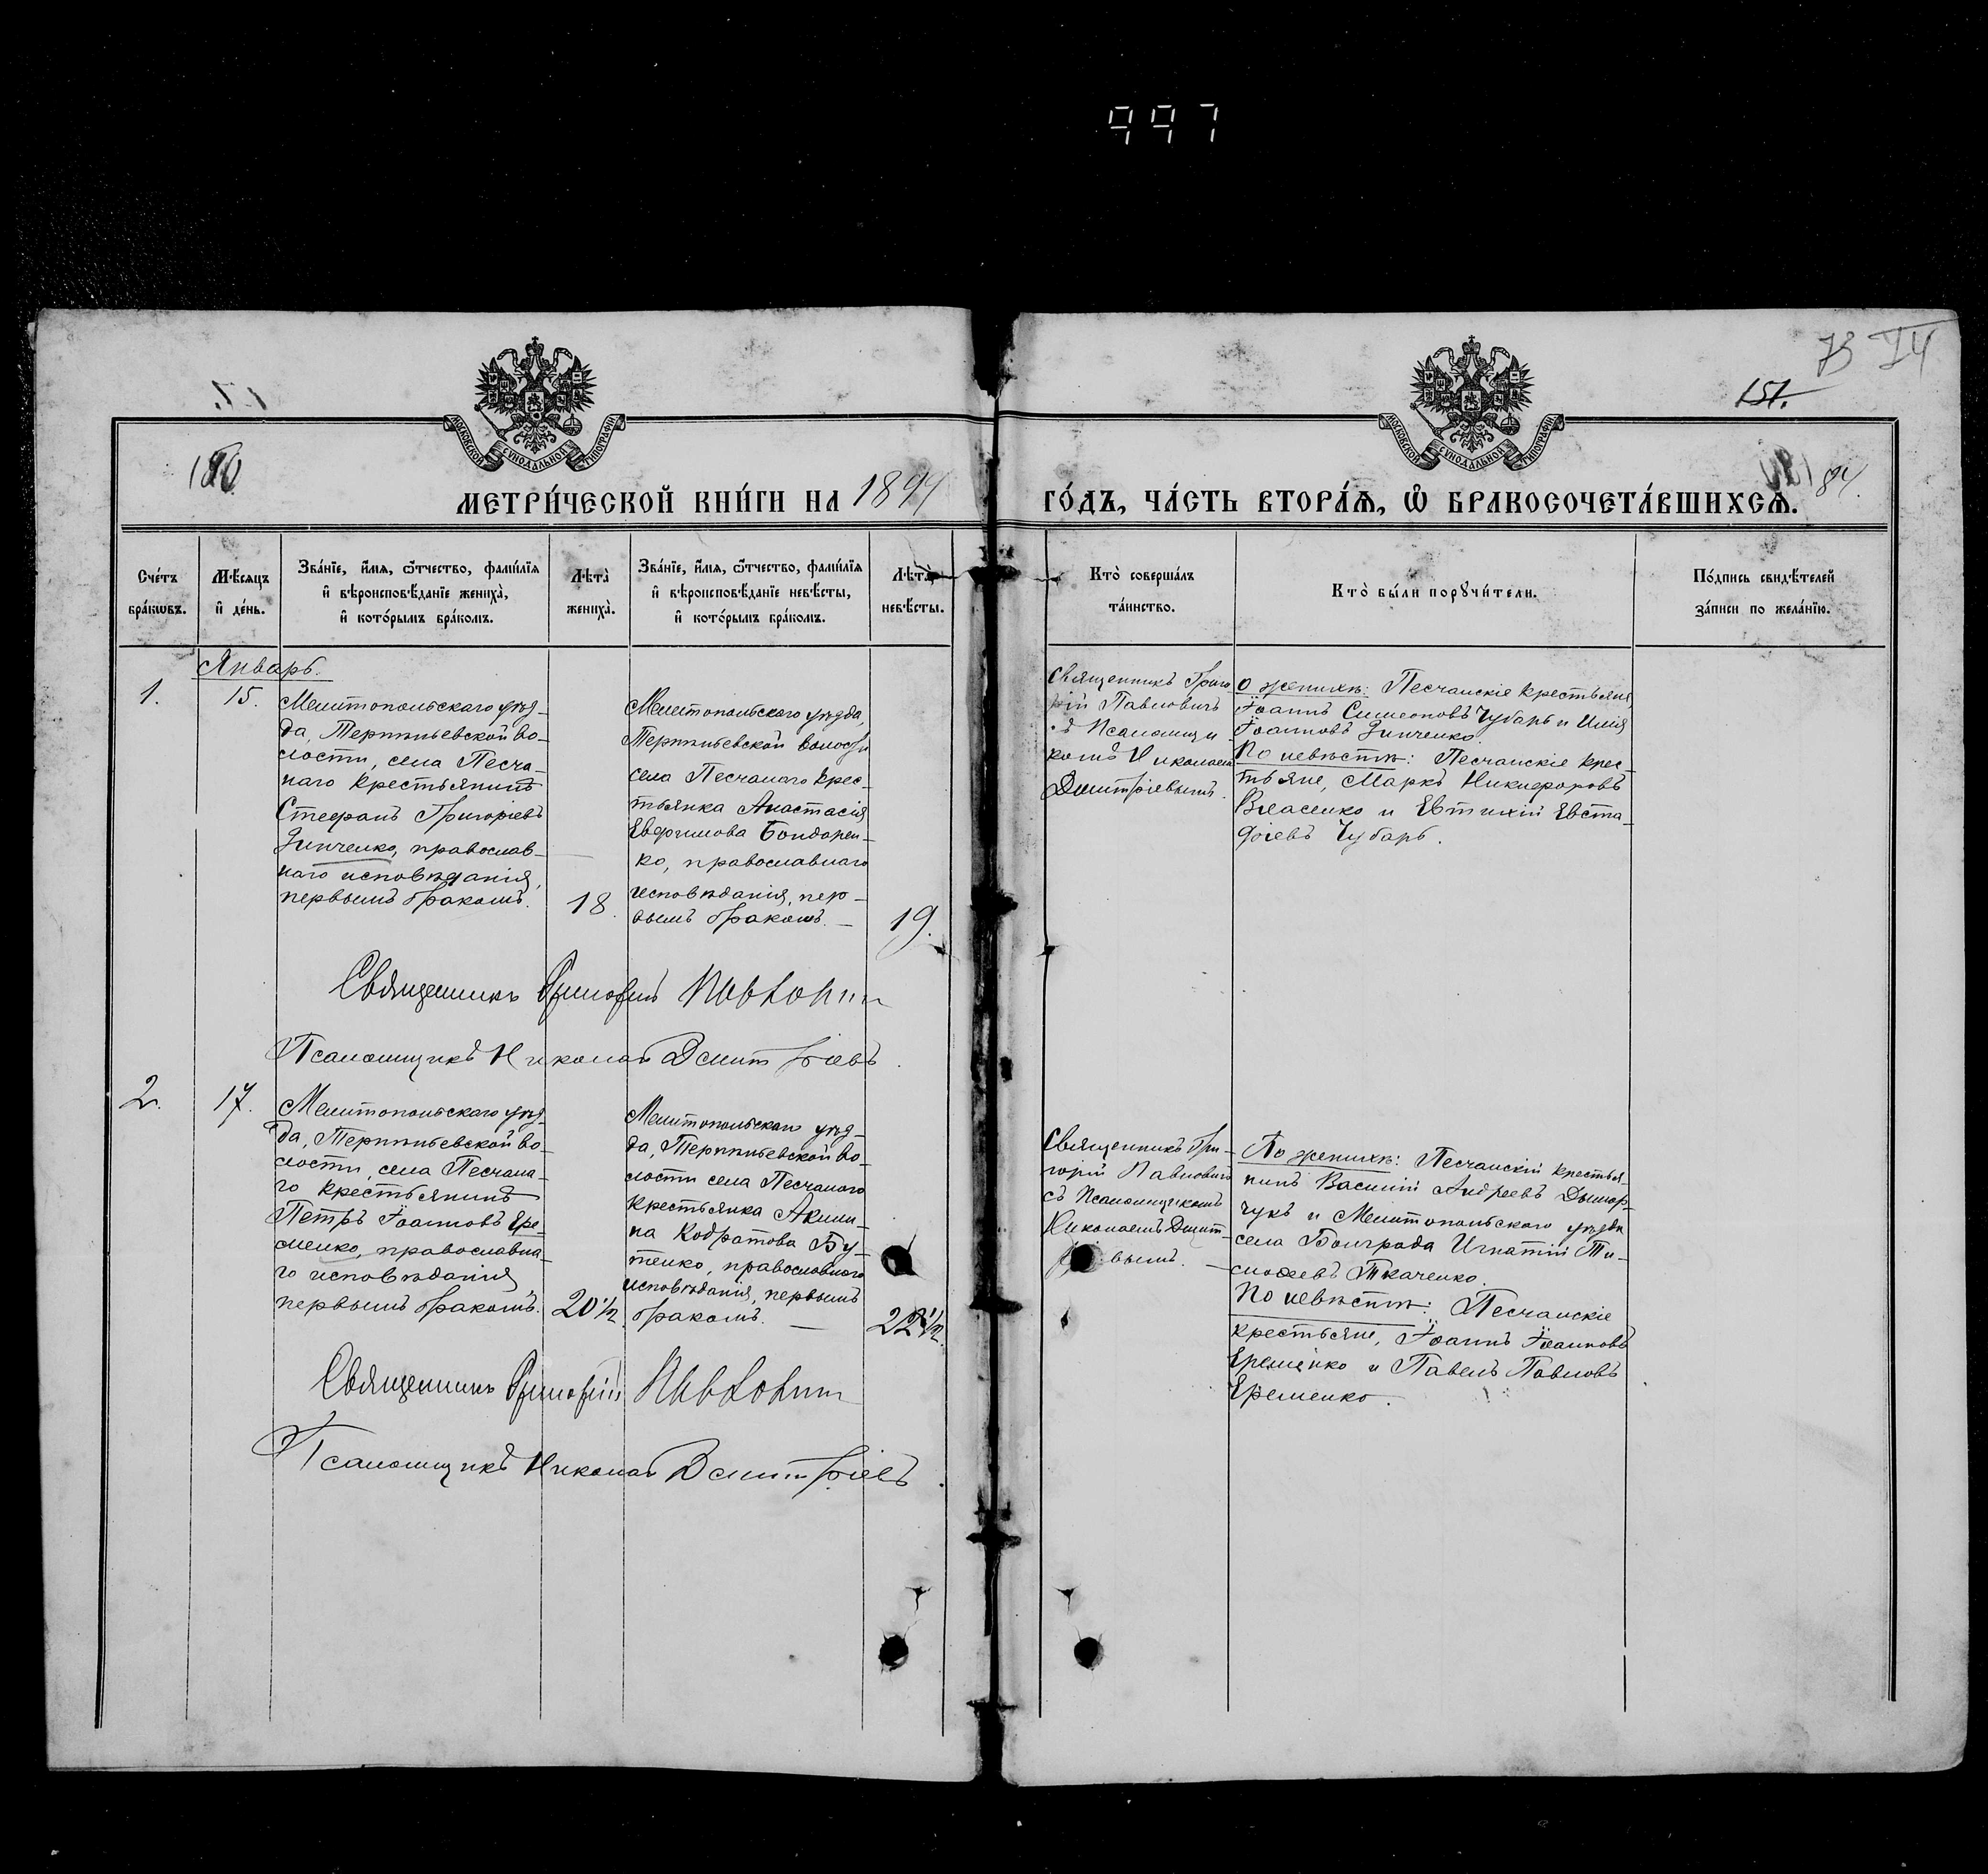 997
73 74
151.
МОСКОВСКОЙ СѴНОДАЛЬНОЙ ТИПОГРАФІИ
МОСКОВСКОЙ СѴНОДАЛЬНОЙ ТИПОГРАФІИ
84.
МЕТРИ́ЧЕСКОЙ КНИ́ГИ НА 1894
ГО́ДЪ, ЧА́СТЬ ВТОРА́Ѧ, Ѽ БРАКОСОЧЕТА́ВШИХСѦ.
Сче́тъ бра́кѡвъ.
Мѣ́сяцъ и҆ де́нь.
Зва́нїе, и҆́мѧ, ѻ҆́тчество, фами́лїѧ и҆ вѣроисповѣ́данїе жениха̀, и҆ кото́рымъ бра́комъ.
Лѣта̀ жениха̀.
Зва́нїе, и҆́мѧ, ѻ҆́тчество, фами́лїѧ и҆ вѣроисповѣ́данїе невѣ́сты, и҆ кото́рымъ бра́комъ.
Лѣта̀ невѣ́сты.
Кто̀ соверша́лъ та́инство.
Кто̀ бы́ли порꙋчи́тели.
По́дпись свидѣ́телей за́писи по жела́нїю.
Январь.
1.
15.
Мелитопольскаго уѣз-
да, Терпѣньевской во-
лости, села Песча-
наго крестьянинъ
Стефанъ Григоріевъ
Зинченко, православ-
наго исповѣданія,
первымъ бракомъ.
18.
Мелитопольскаго уѣзда,
Терпѣньевской волости
села Песчанаго крес-
тьянка Анастасія
Евфимова Бондарен-
ко, православнаго
исповѣданія, пер-
вымъ бракомъ. —
19.
Священникъ Григо
рій Павловичъ
съ Псаломщи
комъ Николаемъ
Димитріевымъ.
О женихѣ: Песчанскіе крестьяне
Іоаннъ Симеоновъ Чубарь и Илія
Іоанновъ Зинченко
По невѣстѣ: Песчанскіе крес-
тьяне, Маркъ Никифоровъ
Власенко и Евтихій Евста-
фіевъ Чубарь.
Священникъ Григорій Павловичъ
Псаломщикъ Николай Димитріевъ.
2.
17.
Мелитопольскаго уѣз-
да, Терпѣньевской во-
лости, села Песчана-
го крестьянинъ
Петръ Іоанновъ Ере-
менко, православна-
го исповѣданія
первымъ бракомъ.
20½
Мелитопольскаго уѣз-
да, Терпѣньевской во-
лости села Песчанаго
крестьянка Акили-
на Кодратова Бу-
тенко, православнаго
исповѣданія, первымъ
бракомъ. —
22½
Священникъ Гри-
горій Павловичъ
съ Псаломщикомъ
Николаемъ Димит-
вымъ. —
По женихѣ: Песчанскій крестья-
нинъ Василій Андреевъ
чукъ и Мелитопольскаго уѣзда
села Богнграда Игнатій Ти-
моѳеевъ Ткаченко.
По невѣстѣ: Песчанскіе
крестьяне, Іоаннъ Іоанновъ
Еременко и Павелъ Павловъ
Еременко.
Священникъ Григорій Павловичъ
Псаломщикъ Николай Димитріевъ.